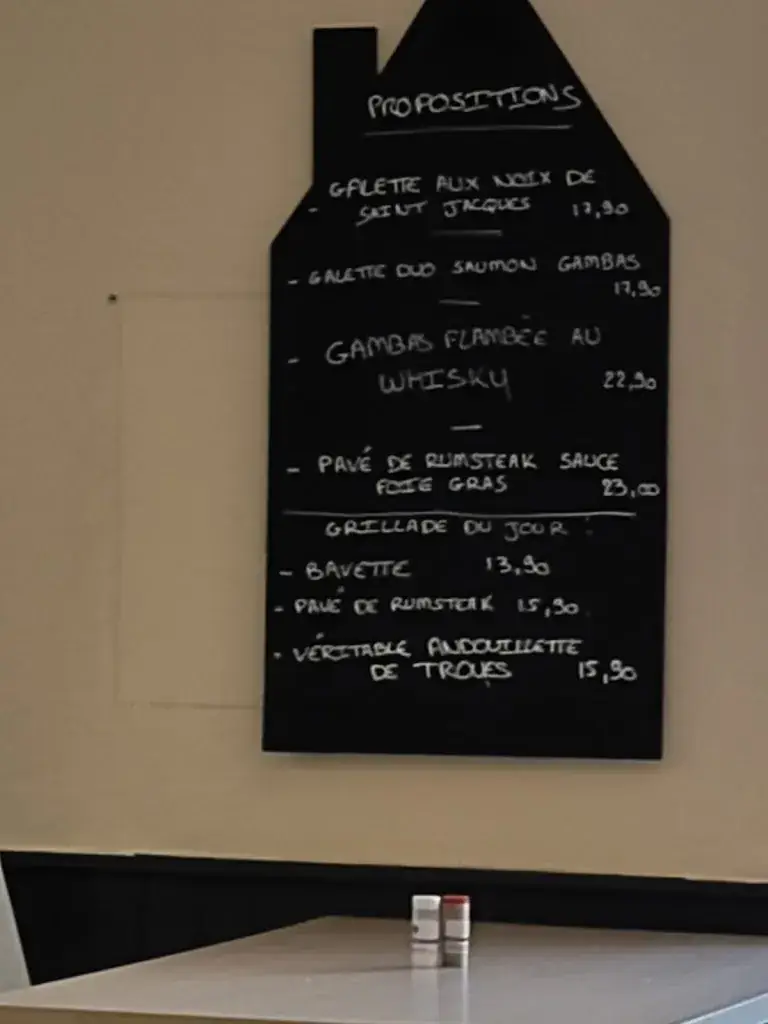 PROPOSITIONS
- GALETTE AUX NOIX DE
SAINT JACQUES 17,90
- GALETTE DUO SAUMON GAMBAS
17,90
- GAMBAS FLAMBÉE AU
WHISKY 22,90
- PAVÉ DE RUMSTEAK SAUCE
FOIE GRAS 23,00
GRILLADE DU JOUR :
- BAVETTE 13,90
- PAVÉ DE RUMSTEAK 15,90
- VÉRITABLE ANDOUILLETTE
DE TROYES 15,90